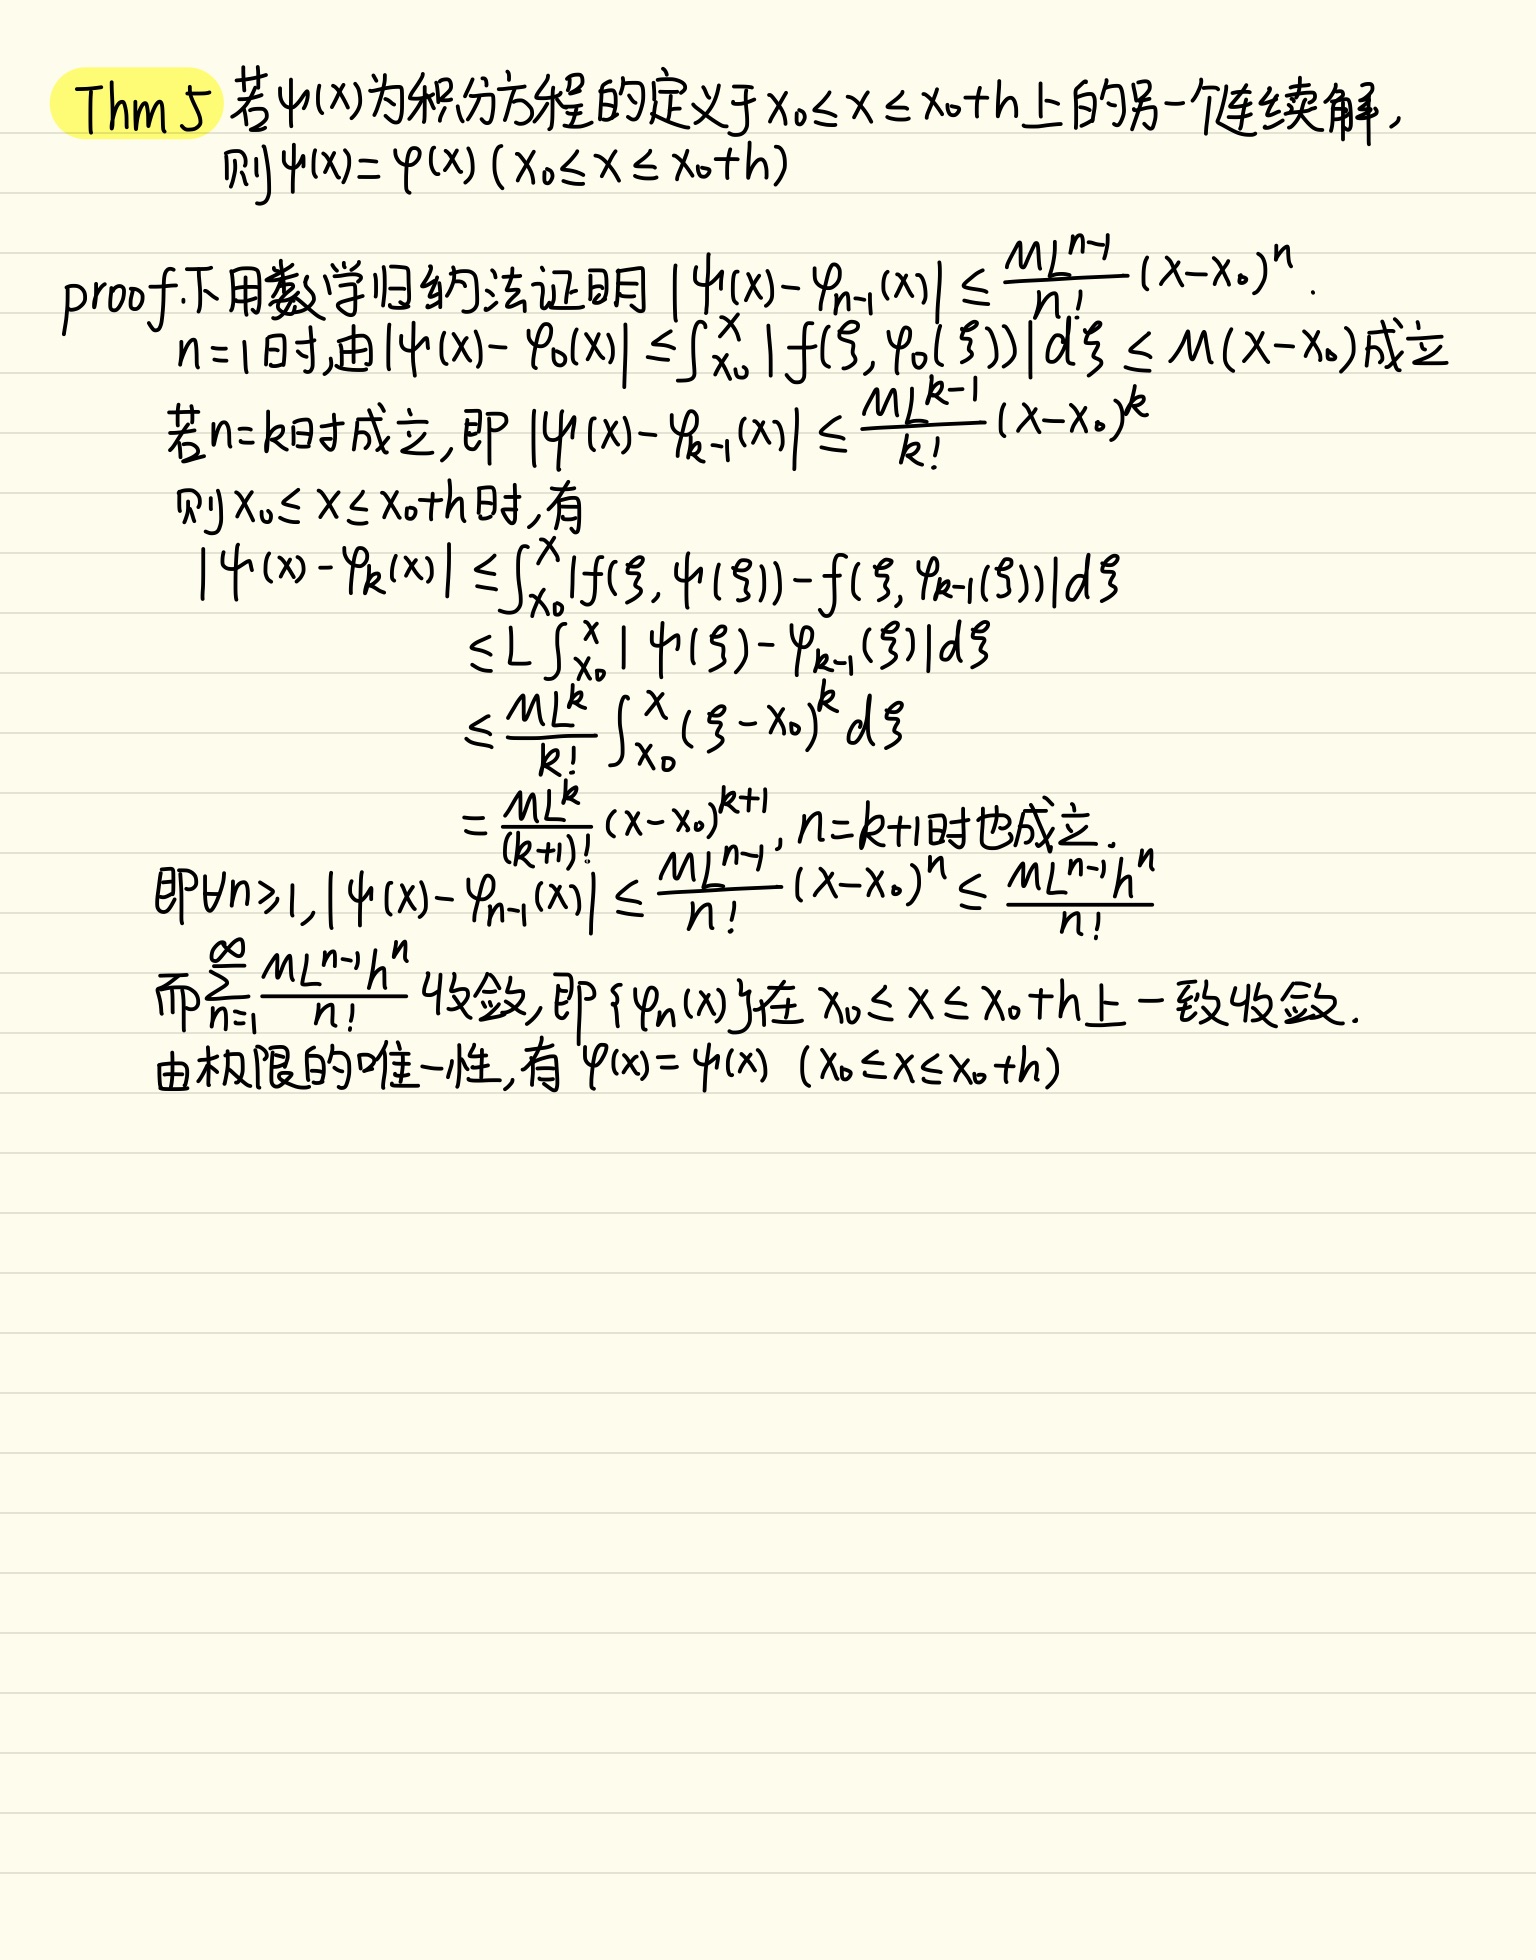 Thm 5 若ψ(x)为积分方程的定义于x₀≤x≤x₀+h上的另一个连续解,
则ψ(x)=φ(x) (x₀≤x≤x₀+h)
proof.下用数学归纳法证明 |ψ(x)-φₙ₋₁(x)| ≤ \frac{ML^{n-1}}{n!}(x-x₀)^n.
n=1时,由|ψ(x)-φ₀(x)| ≤ ∫_{x₀}^{x} |f(ξ,φ₀(ξ))|dξ ≤ M(x-x₀)成立
若n=k时成立,即 |ψ(x)-φ_{k-1}(x)| ≤ \frac{ML^{k-1}}{k!}(x-x₀)^k
则x₀≤x≤x₀+h时,有
|ψ(x)-φ_k(x)| ≤ ∫_{x₀}^{x} |f(ξ,ψ(ξ))-f(ξ,φ_{k-1}(ξ))|dξ
≤ L∫_{x₀}^{x} |ψ(ξ)-φ_{k-1}(ξ)|dξ
≤ \frac{ML^k}{k!} ∫_{x₀}^{x} (ξ-x₀)^k dξ
= \frac{ML^k}{(k+1)!}(x-x₀)^{k+1}, n=k+1时也成立.
即∀n≥1, |ψ(x)-φ_{n-1}(x)| ≤ \frac{ML^{n-1}}{n!}(x-x₀)^n ≤ \frac{ML^{n-1}h^n}{n!}
而∑_{n=1}^{∞} \frac{ML^{n-1}h^n}{n!}收敛,即{φₙ(x)}在 x₀≤x≤x₀+h上一致收敛.
由极限的唯一性,有 φ(x)=ψ(x) (x₀≤x≤x₀+h)